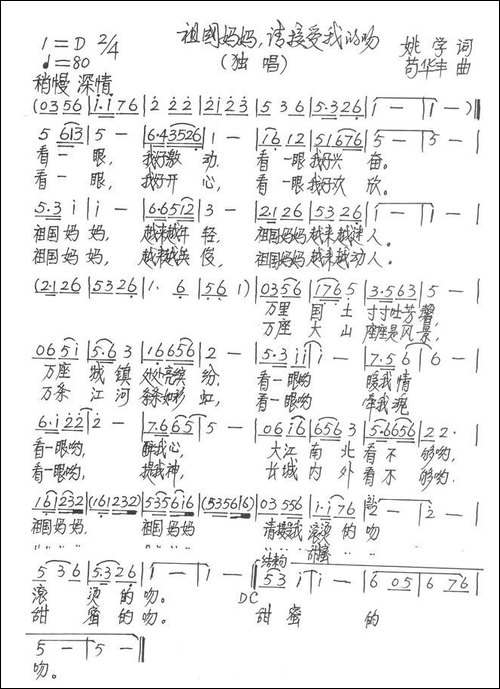 祖国妈妈,请接受我的吻
1=D 2/4
♩=80
(独唱)
姚学 词
苟华丰 曲
稍慢 深情
(0356 | i·i76 | 2 2 2 | 2i23 | 5 3 6 | 5·326 | 1 — | 1 — )
5 613 | 5 — | 6·43526 | 1 — | 16 12 | 51676 | 5 — | 5 — |
看一眼, 我好激动, 看一眼我好兴奋。
看一眼, 我好开心, 看一眼我好欢欣。
5·3 i | i — | 6·6512 | 3 — | 2126 | 5326 | 1 — | 1 — |
祖国妈妈, 越来越年轻, 祖国妈妈越来越迷人。
祖国妈妈, 越来越英俊, 祖国妈妈越来越动人。
(2·126 | 5326 | 1· 6 | 56 1) | 0356 | 1765 | 3·563 | 5 — |
万里国土寸寸吐芳馨,
万座大山座座是风景,
065i | 5·6 3 | 16656 | 2 — | 5·3ii | i — | 7·56 | 6 — |
万座城镇处处亮缤纷, 看一眼哟 暖我情
万条江河条条如彩虹, 看一眼哟 牵我魂
6·i22 | 2 — | 7·665 | 5 — | 06i6 | 656 3 | 5·6656 | 22· |
看一眼哟, 醉我心, 大江南北看不够哟,
看一眼哟, 提我神, 长城内外看不够哟,
16232 | (161232) | 5356i6 | (535616) | 03 556 | i·i76 | 2 — | 2 — |
祖国妈妈 祖国妈妈 请接受我滚烫的吻
〃〃〃〃 〃〃〃〃 〃〃〃〃 甜蜜〃〃
结构
5 3 6 | 5·326 | 1 — | 1 — | 53 i | i — | 6 05 | 6 76 |
滚烫的吻。 DC 甜蜜的
甜蜜的吻。
5 — | 5 — ‖
吻。